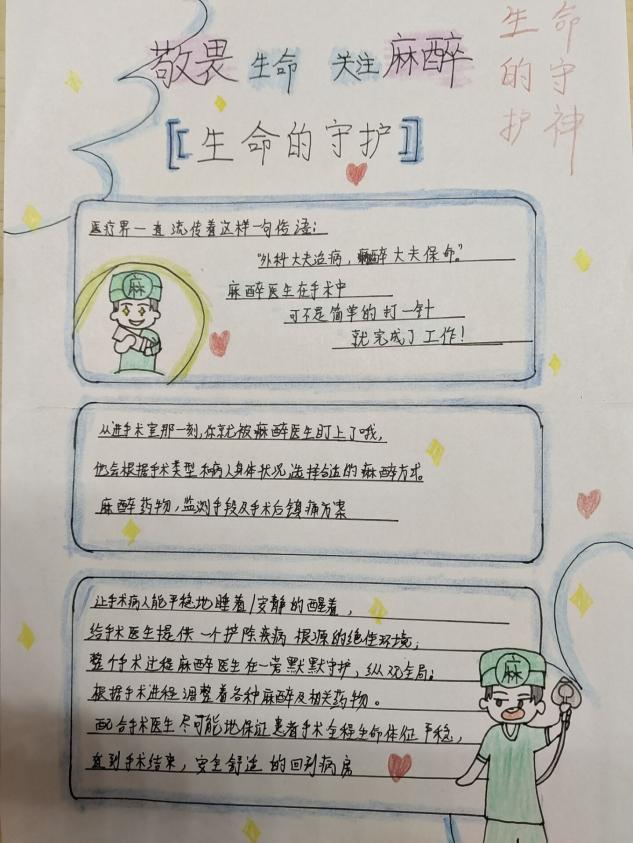 敬畏生命 关注麻醉
生命
的守
护神
【生命的守护】
医疗界一直流传着这样一句传语：
“外科大夫治病，麻醉大夫保命。”
麻醉医生在手术中
可不是简单的打一针
就完成了工作！
麻
从进手术室那一刻，你就被麻醉医生盯上了哦，
他会根据手术类型和病人身体状况选择合适的麻醉方式。
麻醉药物，监测手段及手术后镇痛方案
让手术病人能平稳地睡着/安静的醒着，
给手术医生提供一个护除疾病根源的绝佳环境；
整个手术过程麻醉医生在一旁默默守护，纵观全局。
根据手术进程调整着各种麻醉及相关药物。
配合手术医生尽可能地保证患者手术全程生命体征平稳，
直到手术结束，安全舒适的回到病房
麻